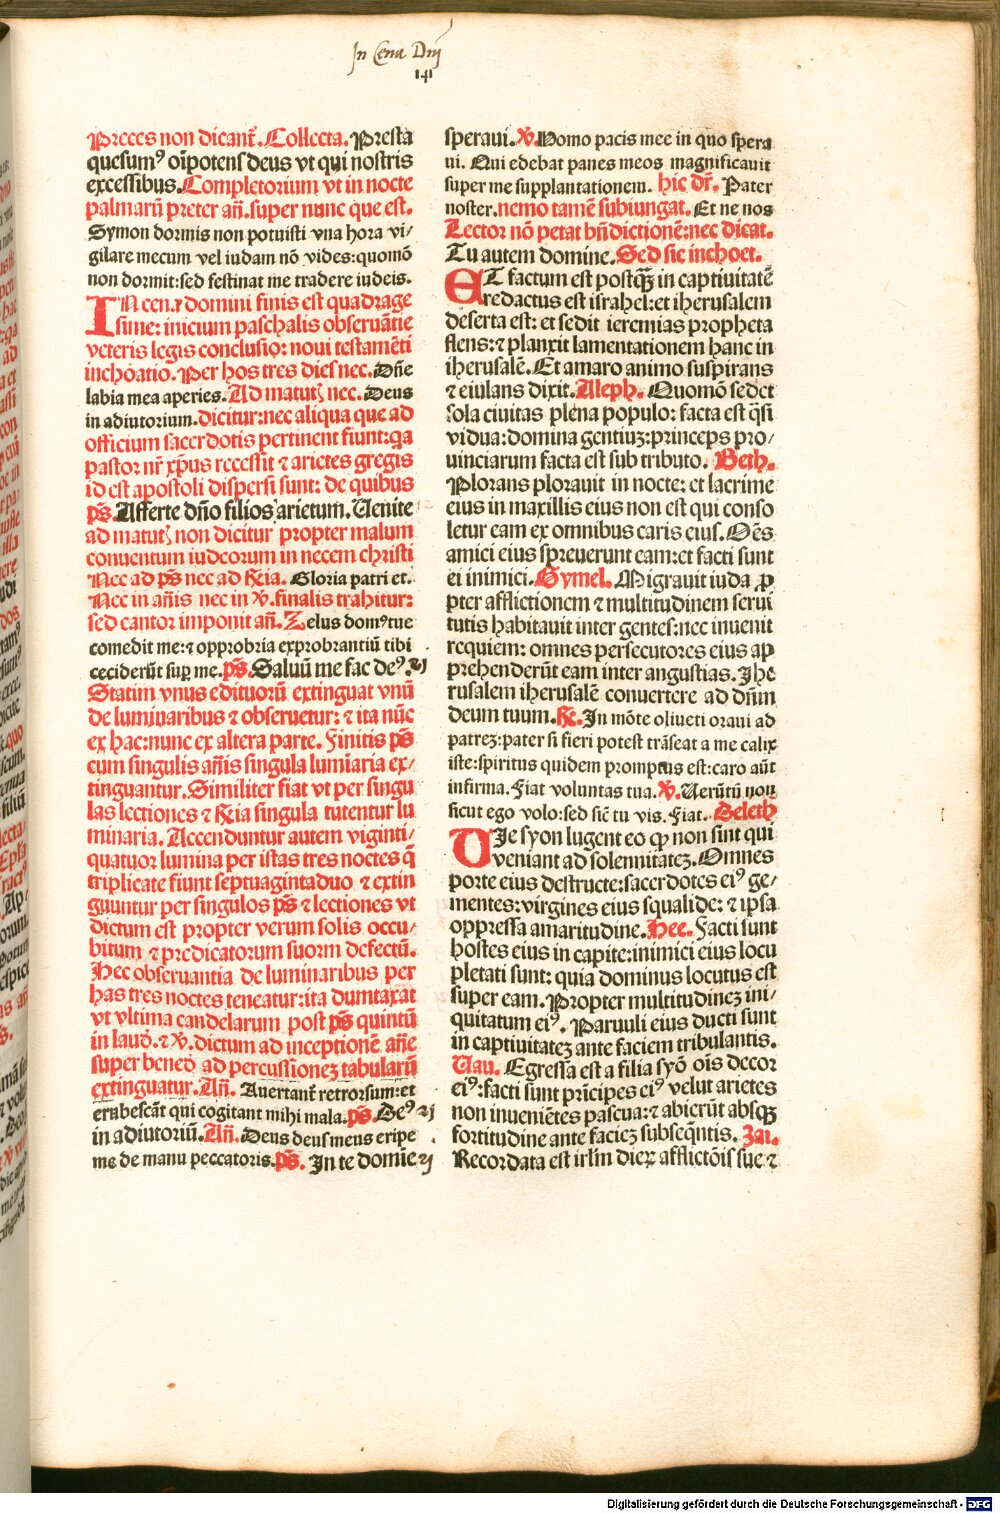 In Cena Dnj
141
Preces non dicant̄. Collecta. Presta
quesumꝰ oīpotens deus vt qui nostris
excessibus. Completorium vt in nocte
palmarū preter añ. super nunc que est.
Symon dormis non potuisti vna hora vi/
gilare mecum vel iudam nō vides: quomō
non dormit: sed festinat me tradere iudeis.
IN cena domini finis est quadrage
sime: inicium paschalis obseruātie
veteris legis conclusio: noui testamēti
inchoatio. Per hos tres dies nec. Dñe
labia mea aperies. Ad matut̄ꝭ nec. Deus
in adiutorium. dicitur: nec aliqua que ad
officium sacerdotis pertinent fiunt: qa
pastor nr̄ xp̄us recessit ⁊ arietes gregis
id est apostoli dispersi sunt: de quibus
ps̄. Afferte dn̄o filios arietum. Uenite
ad matut̄ꝭ non dicitur propter malum
conuentum iudeorum in necem christi
Nec ad ps̄ nec ad R̄ia. Gloria patri et.
Nec in añis nec in ℣. finalis trahitur:
sed cantor imponit añ. Zelus domꝰ tue
comedit me: ⁊ opprobria exprobrantiū tibi
ceciderūt suꝑ me. ps̄. Saluū me fac deꝰ. ij
Statim vnus edituorū extinguat vnū
de luminaribus ⁊ obseruetur: ⁊ ita nūc
ex hac: nunc ex altera parte. Finitis ps̄
cum singulis añis singula lumiaria ex/
tinguantur. Similiter fiat vt per singu
las lectiones ⁊ R̄ia singula tutentur lu
minaria. Accenduntur autem viginti/
quatuor lumina per istas tres noctes q̄
triplicate fiunt septuaginta duo ⁊ extin
guuntur per singulos ps̄ ⁊ lectiones vt
dictum est propter verum solis occu/
bitum ⁊ predicatorum suorm defectū.
Hec obseruantia de luminaribus per
has tres noctes teneatur: ita dumtaxat
vt vltima candelarum post ps̄ quintū
in laud̄. ⁊ ℣. dictum ad inceptionē añe
super bened̄ ad percussionez tabularū
extinguatur. Añ. Auertant̄ retrorsum: et
erubescāt qui cogitant mihi mala. ps̄. Deꝰ ij
in adiutoriū. Añ. Deus deus meus eripe
me de manu peccatoris. ps̄. In te domie ij
speraui. ℣. Homo pacis mee in quo spera
ui. Qui edebat panes meos magnificauit
super me supplantationem. hic dr̄. Pater
noster. nemo tamē subiungat. Et ne nos
Lector nō petat bn̄dictionē: nec dicat.
Tu autem domine. Sed sic inchoet.
ET factum est postqȝ in captiuitatē
redactus est israhel: et iherusalem
deserta est: et sedit ieremias propheta
flens: ⁊ planxit lamentationem hanc in
iherusalē. Et amaro animo suspirans
⁊ eiulans dixit. Aleph. Quomō sedet
sola ciuitas plena populo: facta est q̄si
vidua: domina gentiuȝ: princeps pro/
uinciarum facta est sub tributo. Beth.
Plorans plorauit in nocte: et lacrime
eius in maxillis eius non est qui conso
letur eam ex omnibus caris eius. Oēs
amici eius spreuerunt eam: et facti sunt
ei inimici. Gymel. Migrauit iuda ꝓ
pter afflictionem ⁊ multitudinem serui
tutis habitauit inter gentes: nec inuenit
requiem: omnes persecutores eius ap
prehenderūt eam inter angustias. Ihe
rusalem iherusalē conuertere ad dn̄m
deum tuum. R̄. In mōte oliueti oraui ad
patreȝ: pater si fieri potest trāseat a me calix
iste: spiritus quidem promptus est: caro aūt
infirma. Fiat voluntas tua. ℣. Uerūtū non
sicut ego volo: sed sic̄ tu vis. Fiat. Deleth
UIe syon lugent eo ꝙ non sint qui
veniant ad solennitateȝ. Omnes
porte eius destructe: sacerdotes eiꝰ ge/
mentes: virgines eius squalide: ⁊ ipsa
oppressa amaritudine. Hee. Facti sunt
hostes eius in capite: inimici eius locu
pletati sunt: quia dominus locutus est
super eam. Propter multitudineȝ ini/
quitatum eiꝰ. Paruuli eius ducti sunt
in captiuitateȝ ante faciem tribulantis.
Uau. Egressa est a filia syō oīs decor
eiꝰ: facti sunt prīcipes eiꝰ velut arietes
non inueniētes pascua: ⁊ abierūt absqȝ
fortitudine ante facieȝ subseq̄ntis. Zai.
Recordata est irl̄m dieꝝ afflictōis sue ⁊
Digitalisierung gefördert durch die Deutsche Forschungsgemeinschaft - DFG